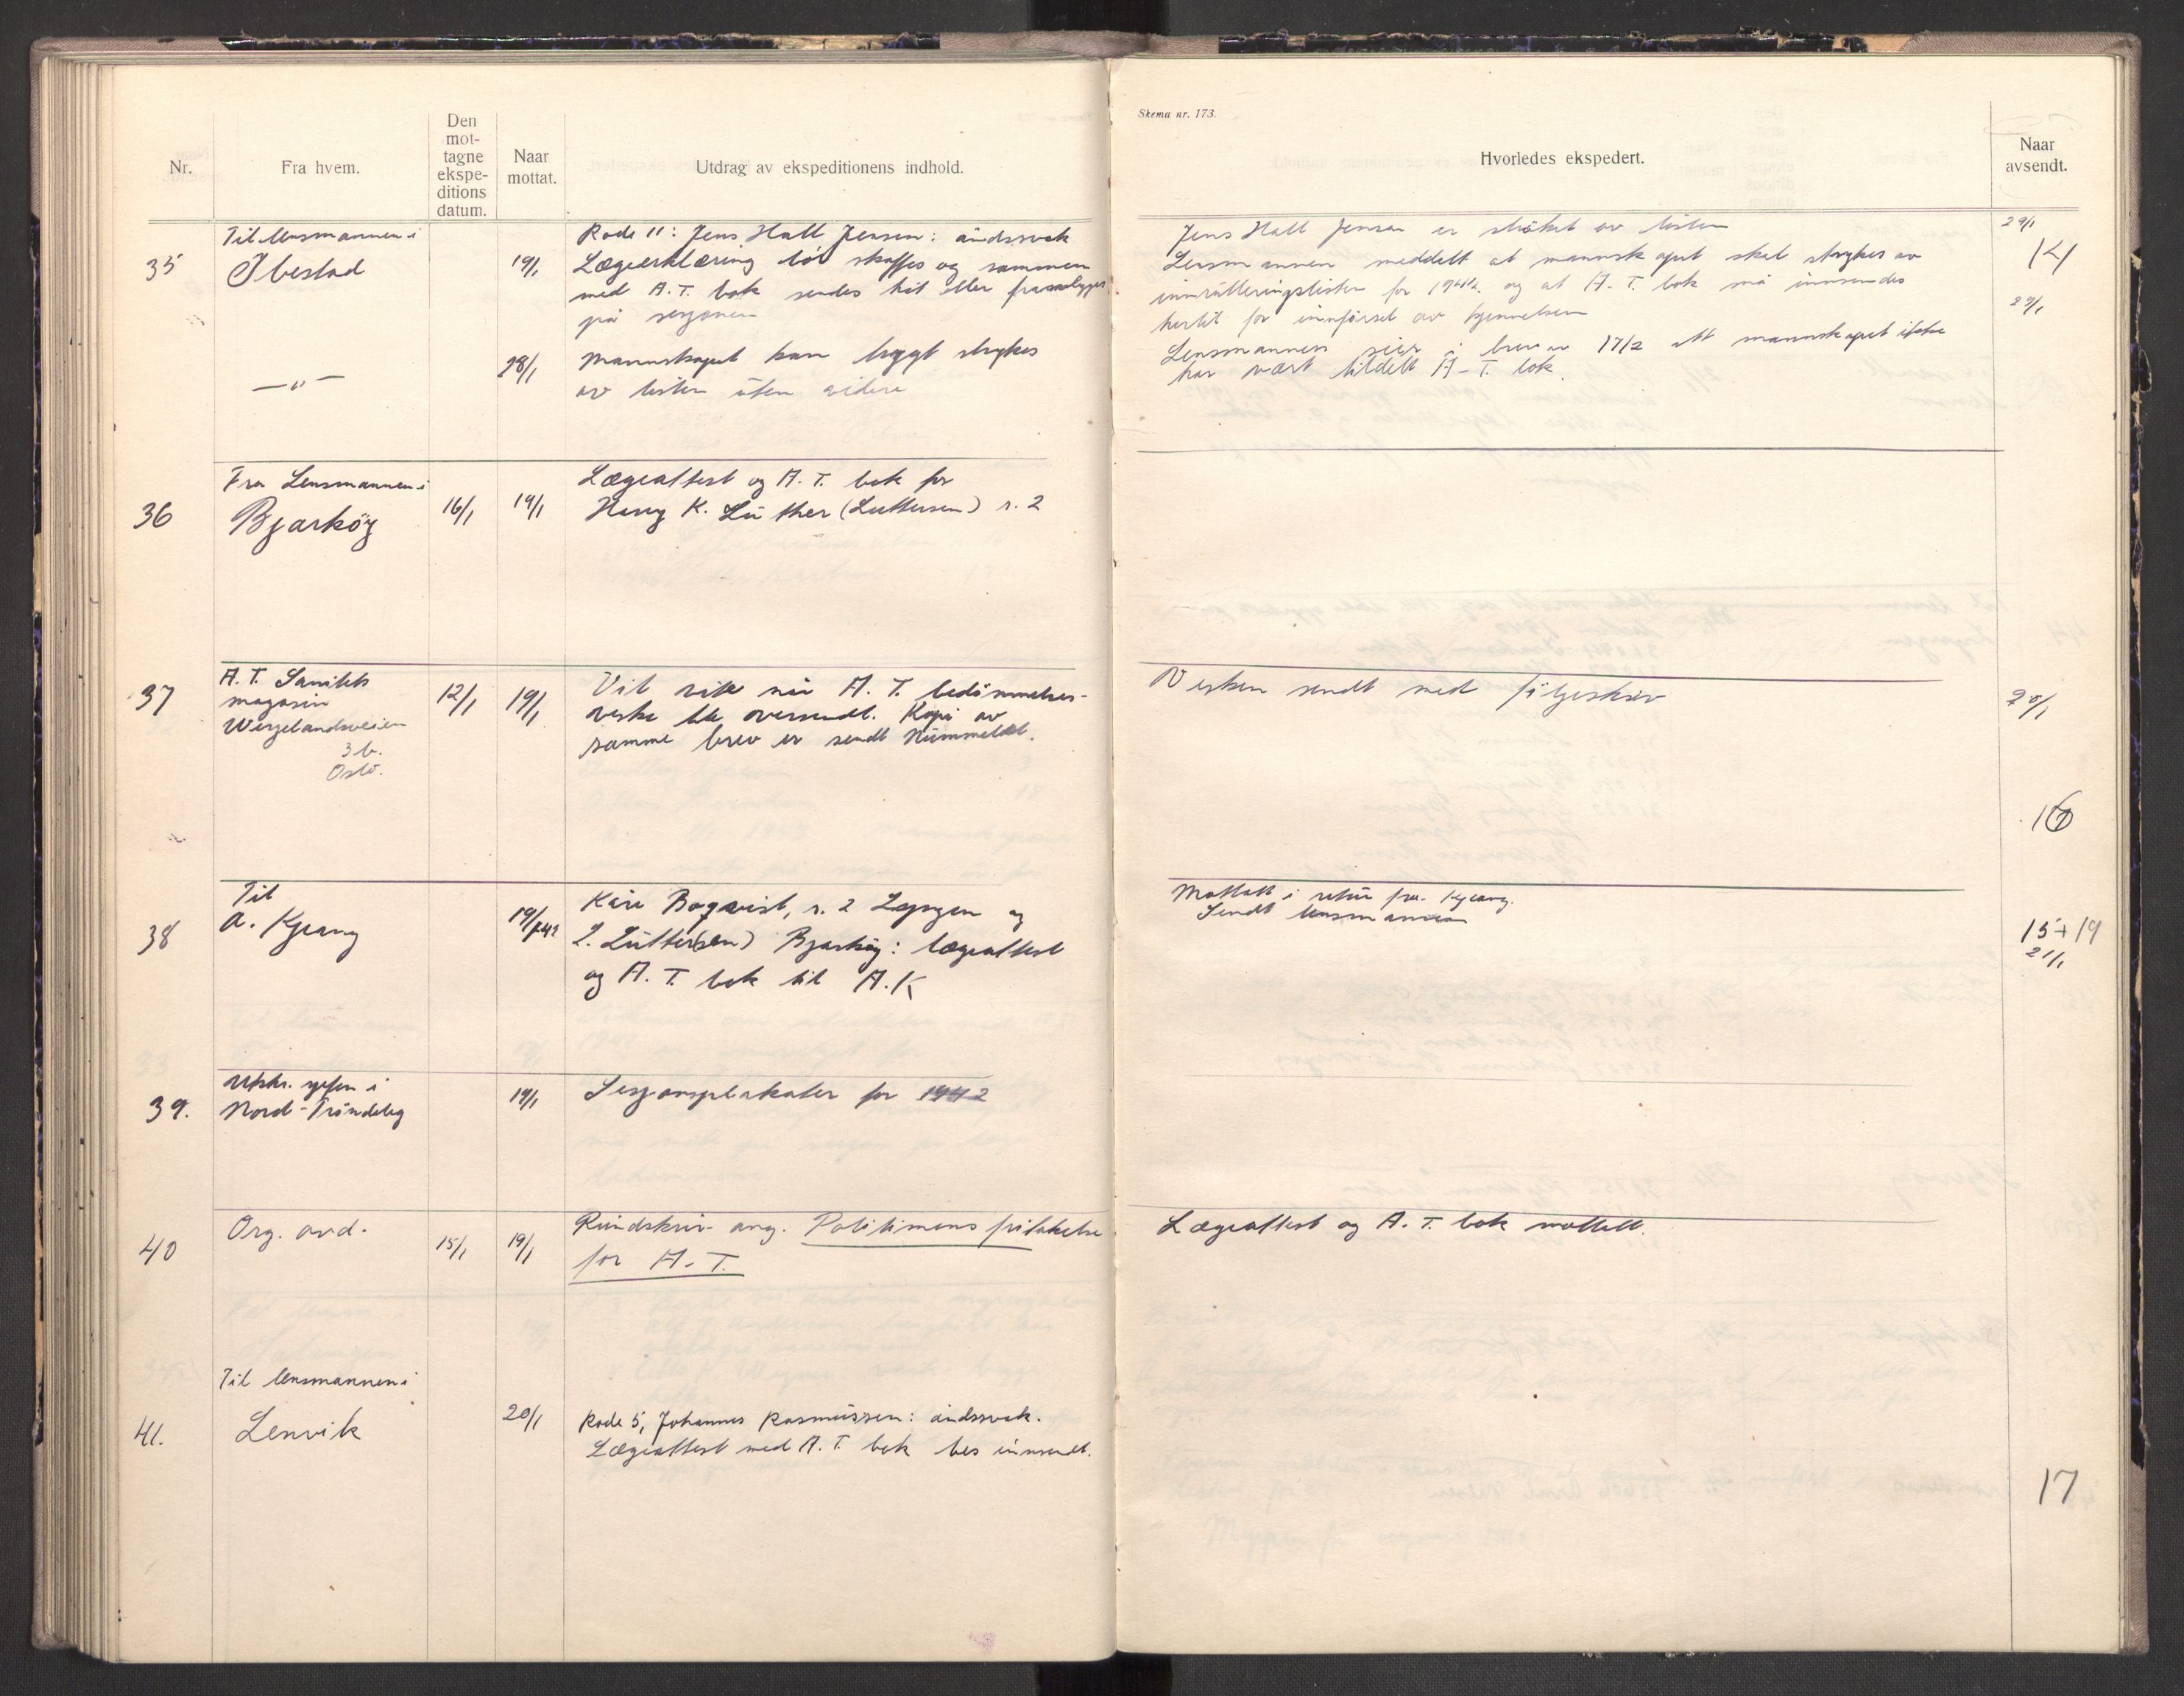 Nr.
Fra hvem.
Den
mot-
tagne
ekspe-
ditions
datum.
Naar
mottat.
Utdrag av ekspeditionens indhold.
35
Til lensmannen i
Ibestad
19/1
Rode 11: Jens Hall Jensen: åndssvak
Lægeerklæring bör skaffes og sammen
med A. T. bok sendes hit eller
på sesjonen
— " —
28/1
Mannskapet kan trygt strykes
av listen uten videre
36
Fra Lensmannen i
Bjarköy
16/1
19/1
Lægeattest og A. T. bok for
K. Luther (Luttersen) r. 2
37
A. T. Sanitets
magasin
Wergelandsveien
3 b.
Oslo.
12/1
19/1
Vil vite når A. T. bedömmelses-
veske ble oversendt. Kopi av
samme brev er sendt
38
Til
A. Kjrang
19/1-42
Kåre Boqvist, r. 2 og
L. Lutter(sen) Bjarköy: lægeattest
og A. T. bok til A. K
39.
Utskr. sjefen i
Nord-Tröndelag
19/1
Sesjonsplakater for 1942
40
Org. avd.
15/1
19/1
Rundskriv ang. Politimenns fritakelse
for A. T.
41.
Til lensmannen i
Lenvik
20/1
Rode 5, Johannes Rasmussen: åndssvak.
Lægeattest med A. T. bok bes innsendt.
Skema nr. 173.
Hvorledes ekspedert.
Naar
avsendt.
Jens Hall Jensen er ströket av listen
29/1
Lensmannen meddelt at mannskapet skal strykes av
14
innrulleringslisten for 1942 og at A. T. bok må innsendes
hertil for innförsel av kjennelsen
29/1
Lensmannen sier i brev av 17/2 att mannskapet ikke
har vært tildelt A-T. bok.
Vesken sendt med fölgeskriv
20/1
16
Mottatt i retur fra Kjrang.
Sendt lensmannen
15+19
21/1
Lægeattest og A. T. bok mottatt.
17